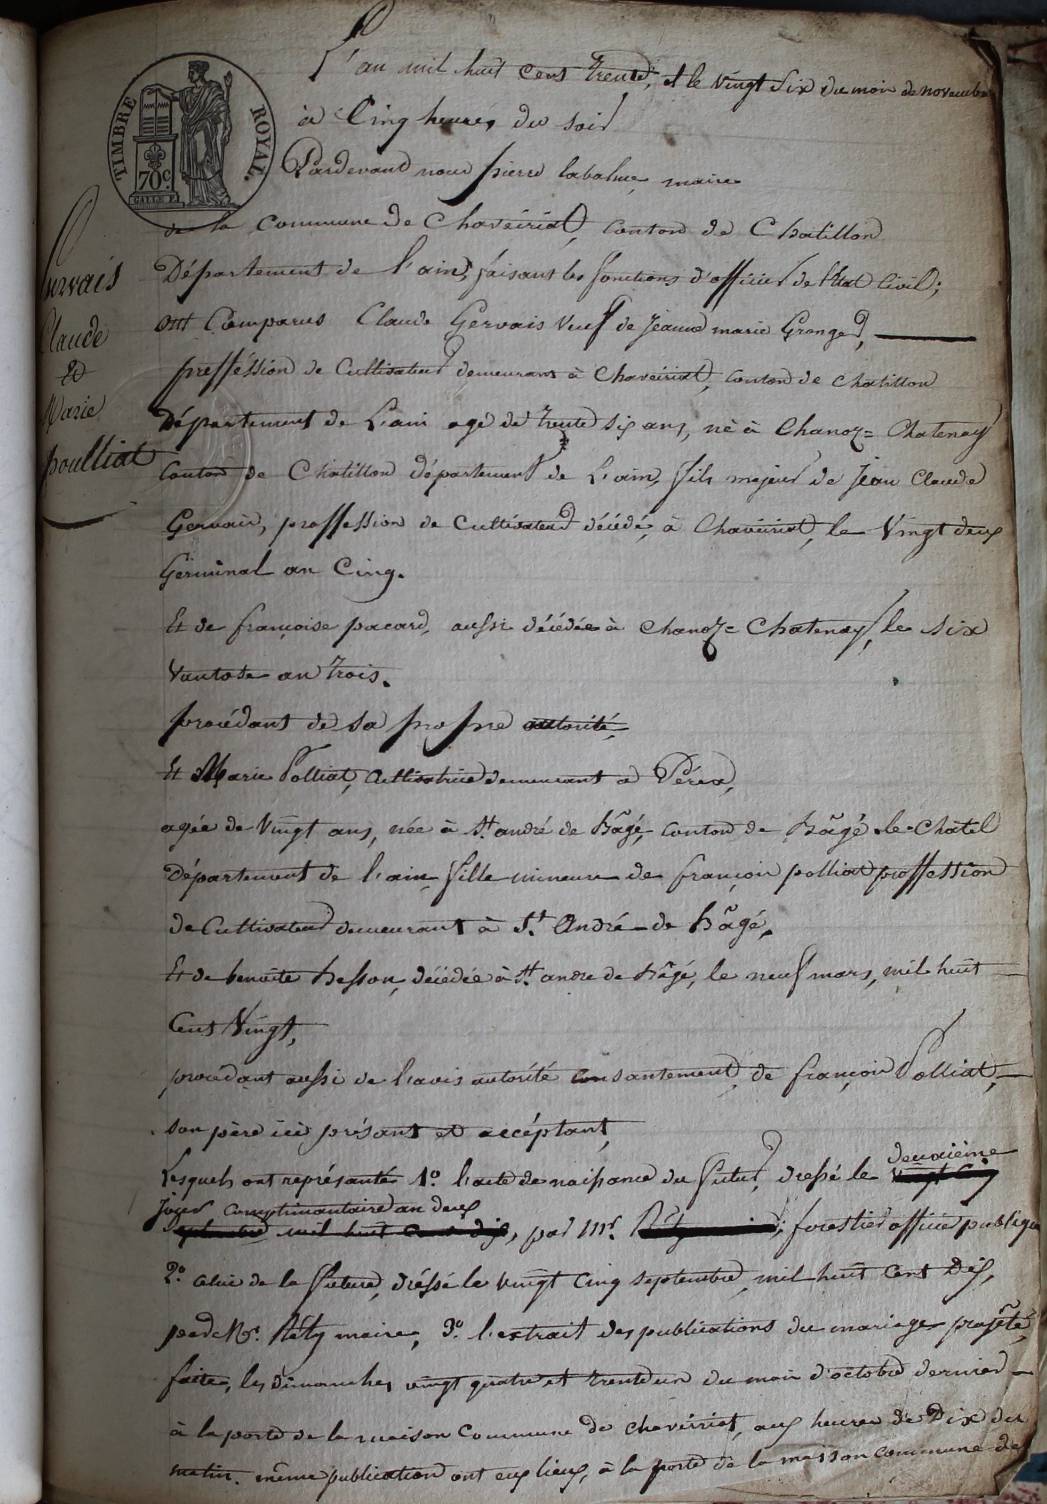 TIMBRE ROYAL.
70c.
L'an mil huit cent trente, et le vingt six du mois de novembre
à Cinq heures du soir
Pardevant nous pierre labalme, maire
de la Commune de Chaveiriat, canton de Chatillon
Département de l'ain, faisant les fonctions d'officier de l'état Civil;
ont Comparus Claude Gervais veuf de Jeanne marie Granged,
proffession de Cultivateur demeurant à Chaveiriat, canton de chatillon
Département de L'ain agé de trente six ans, né à Chanoz=Chatenay
Canton de Chatillon département de L'ain, fils majeur de Jean Claude
Gervais, proffession de Cultivateur décédé, à Chaveiriat, le Vingt deux
Germinal an Cinq.
Et de françoise pacard, aussi décédée à Chanoz=Chatenay, le six
Vantose an trois.
procédant de sa propre autorité,
Et Marie Polliat, Cultivatrice demeurant à Pérex,
agée de Vingt ans, née à St. andré de Bâgé, canton de Bâgé le Châtel
Département de l'ain, fille mineure de françois polliat proffession
de Cultivateur demeurant à St. André-de Bâgé,
Et de benoite Besson, décédée à St andre de Bâgé, le neuf mars, mil huit
Cent Vingt,
procédant aussi de l'avis autorité consantement, de françois Polliat,
son père ici présant et accéptant,
Lesquels ont représanté 1o. l'acte de naissance du futur, dressé le deuxième
jour complimantaire an deux
, par mr. forestier officier publique
2o. celui de la future, dréssé le vingt cinq septembre, mil huit Cent Dix,
par Mr. Réty maire, 3o. l'extrait des publications du mariage projété,
faites, les dimanches vingt quatre et trente un du mois d'octobre dernier
à la porte de la maison Commune de chaveiriat, aux heures de Dix du
matin. même publication ont eux lieux, à la porte de la maison commune de
Gervais
Claude
Et
Marie
poulliat